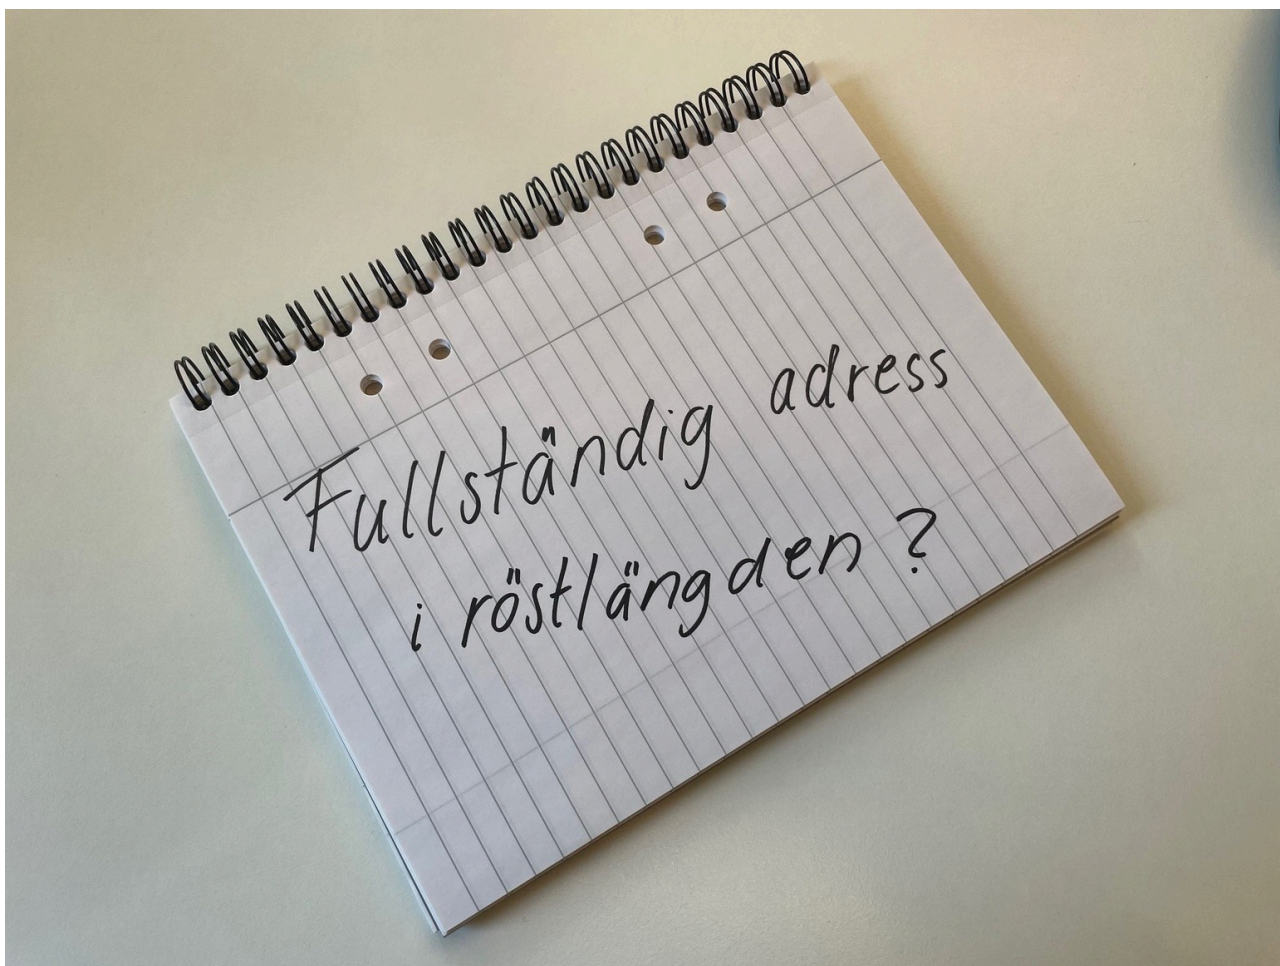 Fullständig adress
i röstlängden ?